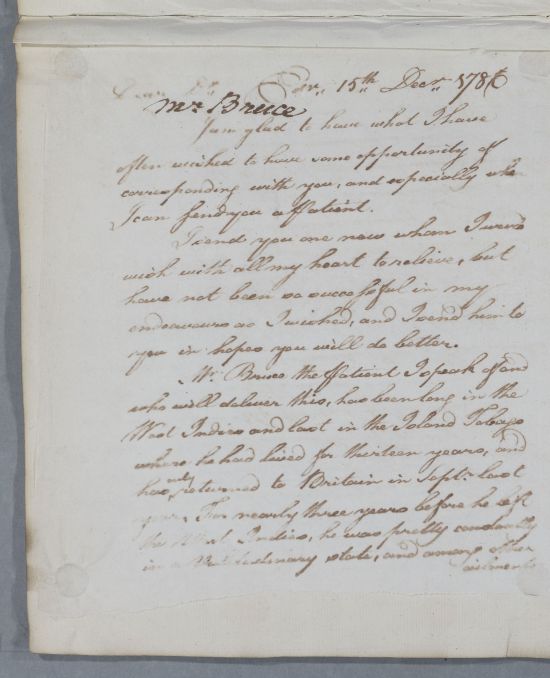 Dear Dr. Edr. 15th Decr. 178
Mr. Bruce
I am glad to have what I have
often wished to have some opportunity of
corresponding with you, and especially when
I can send you a Patient.
I send you one now whom I
wish with all my heart to relieve, but
have not been so successful in my
endeavours as I wished, and I send him to
you in hopes you will do better.
Mr. Bruce the Patient I speak of and
who will deliver this, has been long in the
West Indies and last in the Island Tobago
where he had lived for thirteen years, and
has only returned to Britain in Septr. last
year. For nearly three years before he left
the West Indies, he was pretty constantly
in a Valetudinary state, and among other
ailments